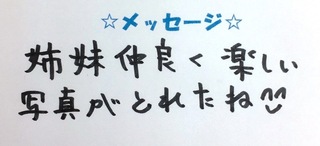 ☆メッセージ☆
姉妹仲良く楽しい
写真がとれたね